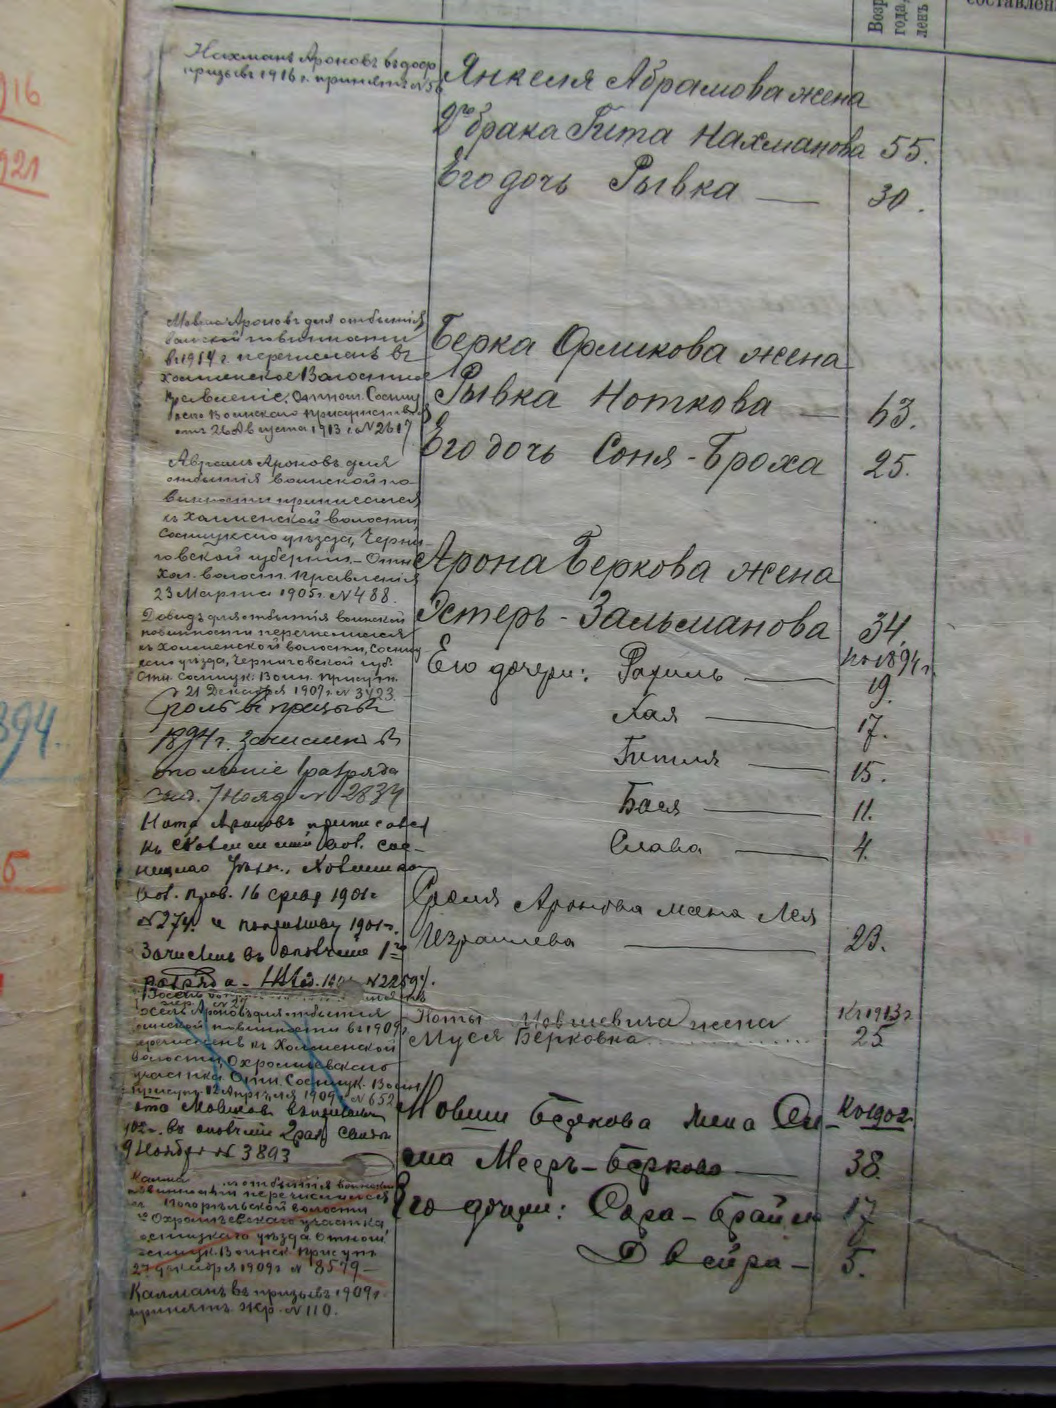 Возр
года,
ленъ
составлен
916
921
394.
5
Нахманъ Ароновъ въ доср
призывъ 1916 г. принятъ №
Янкеля Абрамова жена
2го брака Гита Нахманова 55.
Его дочь Рывка — 30.
Мовша Ароновъ для отбытія
воинской повинности
въ 1914 г. перечисленъ въ
Холменское Волостное
Правленіе. Отнош. Сосниц
каго Воинскаго Присутствія
отъ 26 Августа 1913 г. № 2617
Берка Орликова жена
Рывка Ноткова — 63.
Его дочь Соня-Броха 25.
Аврамъ Ароновъ для
отбытія воинской по-
винности приписался
къ Холменской волости
Сосницкаго уѣзда, Черни-
говской губерніи. - Отн.
Хол. волост. Правленія
23 Марта 1905 г. № 488.
Арона Беркова жена
Эстеръ-Зальманова 34.
Давидъ для отбытія воинской
повинности перечислился
къ Холменской волости, Сосниц
каго уѣзда, Черниговской губ.
Отн. Сосницк. Воин. Присутв.
21 Декабря 1907 г. № 3423
Его дочери: Рахиль — 19.
къ 1894 г.
Хая — 17.
Гитля — 15.
Бася — 11.
Слава — 4.
въ призывъ
1894 г. Зачисленъ въ
ополченіе 1 разряда
Свид. 7 Нояб. № 2834
Нота Ароновъ приписался
къ Холменской вол. Сос-
ницкаго уѣзд., Холменск
вол. прав. 16 1901 г.
№ 274. и призыву 1901 г.
Зачисленъ въ ополченіе 1го
разряда - № 2259.
Сроля Аронова жена Лея
Израилева — 23.
Ароновъ для отбытія
воинской повинности въ 1909
перечисленъ къ Холменской
волости Охрамѣевскаго
участка. Отн. Сосницк. Воин
Присут. 12 Апрѣля 1909 г. № 652
Ноты Мовшевича жена къ 1913 г.
Муся Берковна 25
902 г. въ ополченіе 2 раз. Свид.
9 Ноября № 3893
Мовши Беркова жена Си- къ 1902 г.
ма Мееръ-Беркова — 38.
Его дочери: Сора-Брайна 17
Двейра - 5.
отбытія воинской
повинности перечислился
къ Погорѣльской волости
Охрамѣевскаго участка,
Сосницкаго уѣзда Отнош
Сосницк. Воинск. Присутв.
27 декабря 1909 г № 8579 -
Калманъ въ призывъ 1909 г.
принятъ жр. № 110.